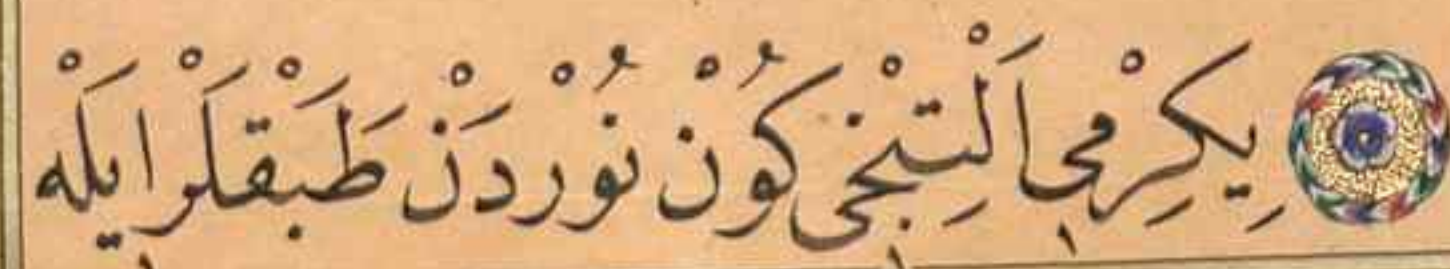 يِكِرْمِى اَلْتِنْجِى كُونْ نُوْرْدَنْ طَبَقْلَرْ اِيلَهْ